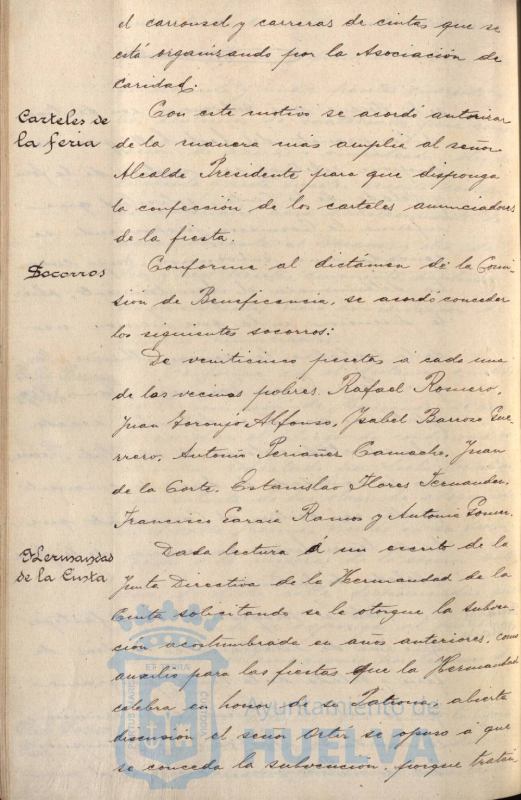 el carrousel y carreras de cintas que se
está organizando por la Asociación de
Caridad.
Carteles de
la feria
Con este motivo se acordó autorizar
de la manera más amplia al señor
Alcalde Presidente para que disponga
la confección de los carteles anunciadores
de la fiesta.
Socorros
Conforme al dictámen de la Comi-
sión de Beneficencia, se acordó conceder
los siguientes socorros:
De veinticinco pesetas á cada uno
de los vecinos pobres Rafael Romero,
Juan Toronjo Alfonso, Isabel Barroso Gue-
rrero, Antonio Periañez Camacho, Juan
de la Corte, Estanislao Flores Fernandez,
Francisco García Ramos y Antonio Gomez.
Hermandad
de la Cinta
Dada lectura á un escrito de la
Junta Directiva de la Hermandad de la
Cinta solicitando se le otorgue la subven-
ción acostumbrada en años anteriores, como
auxilio para las fiestas que la Hermandad
celebra en honor de su Patrona, abierta
discusión el señor se opuso á que
se conceda la subvención, porque tratán
Ayuntamiento de
HUELVA